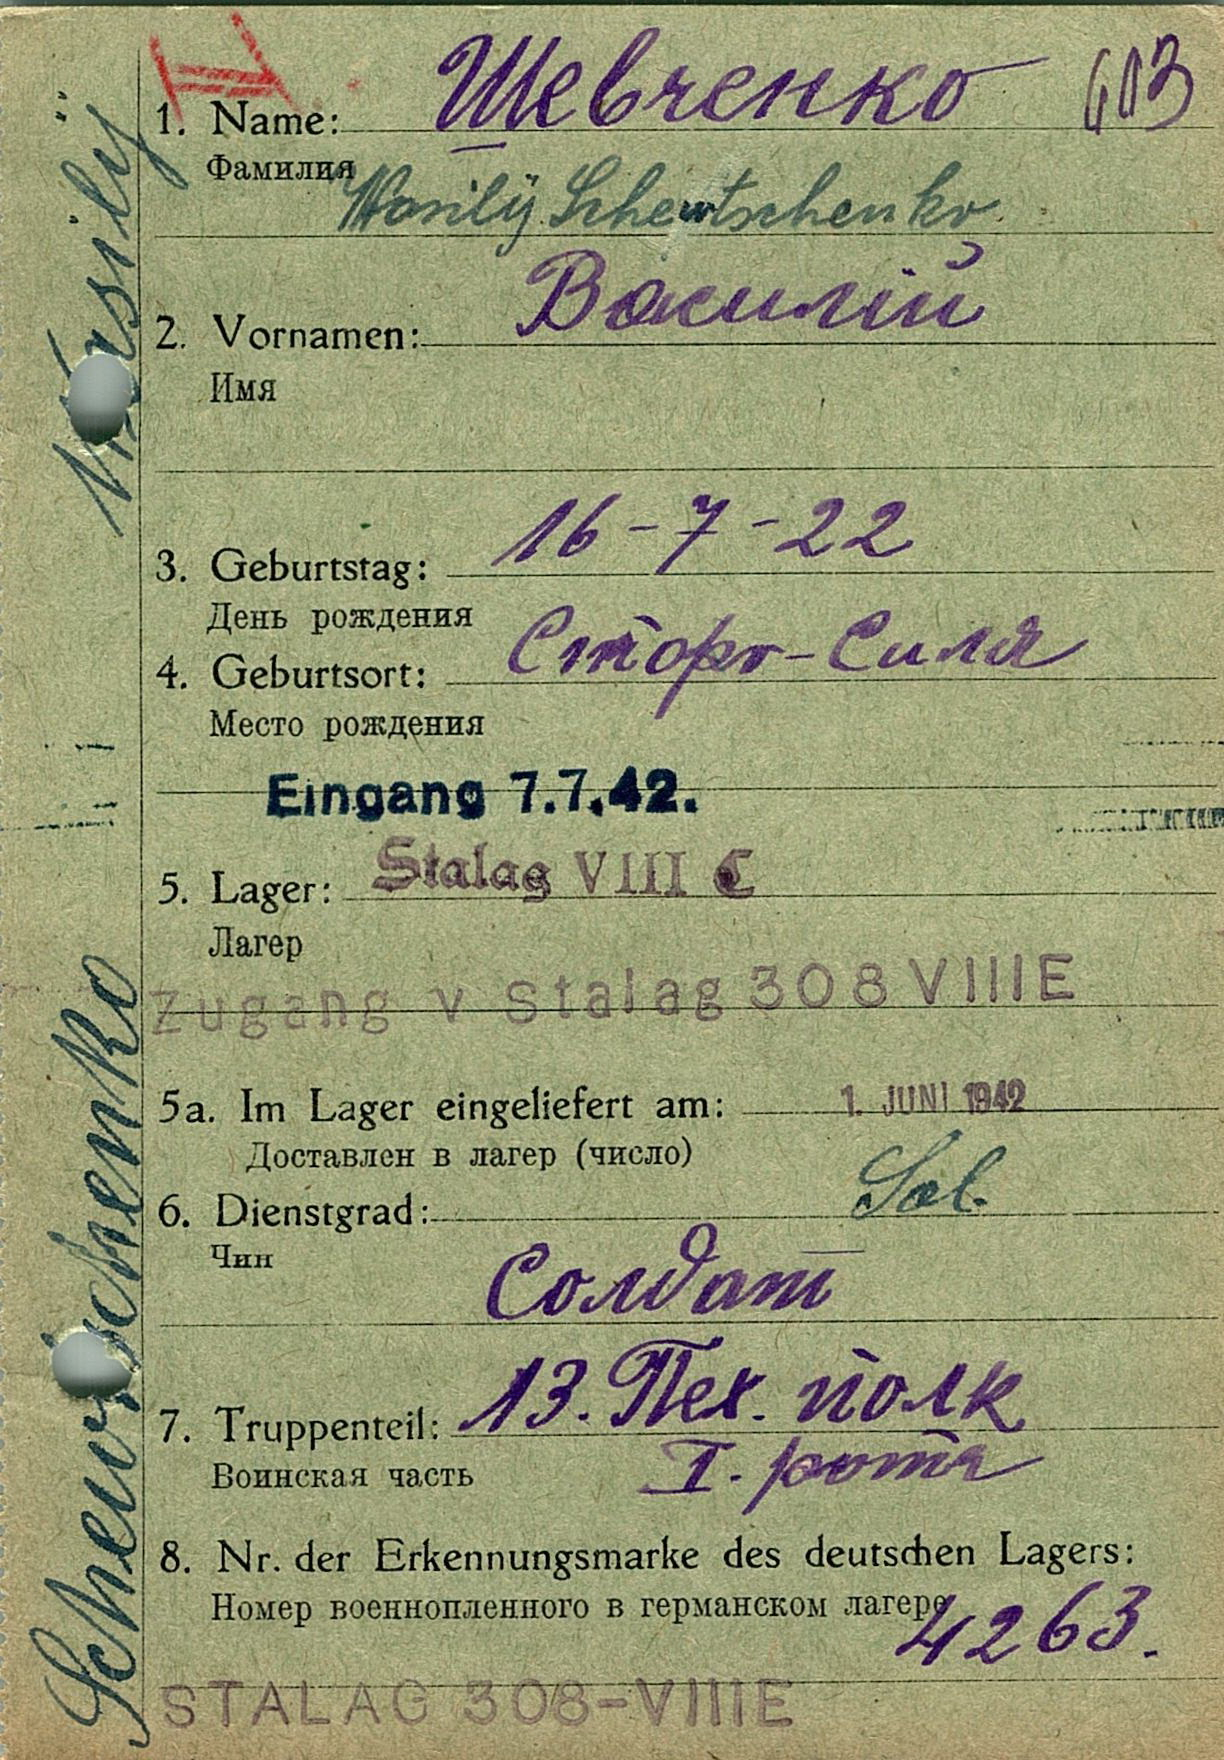 1. Name: Шевченко 603
Фамилия
Wasilÿ Schewtschenko
2. Vornamen: Василій
Имя
3. Geburtstag: 16-7-22
День рождения
4. Geburtsort: Сторо-Силя
Место рождения
Eingang 7.7.42.
5. Lager: Stalag VIII C
Лагер
Zugang v Stalag 308 VIIIE
5a. Im Lager eingeliefert am: 1. JUNI 1942
Доставлен в лагер (число)
6. Dienstgrad: Sol.
Чин
Солдат
7. Truppenteil: 13. Пех. полк
Воинская часть I. рота
8. Nr. der Erkennungsmarke des deutschen Lagers:
Номер военнопленного в германском лагере
4263.
STALAG 308-VIIIE
Schewtschenko Wasilÿ